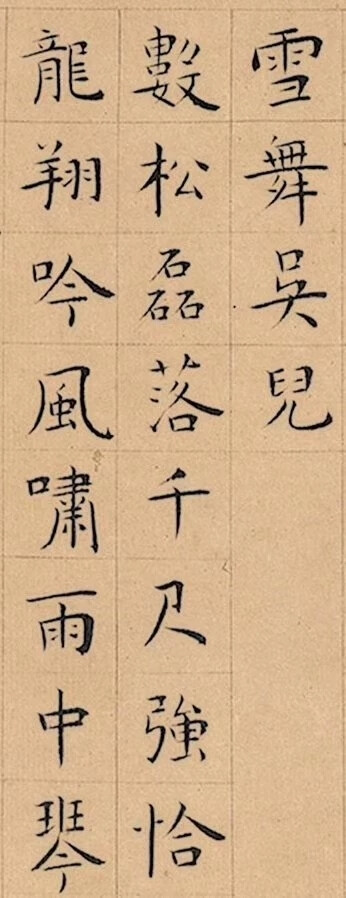 雪舞吳兒
數松磊落千尺強恰
龍翔吟風嘯雨中琴